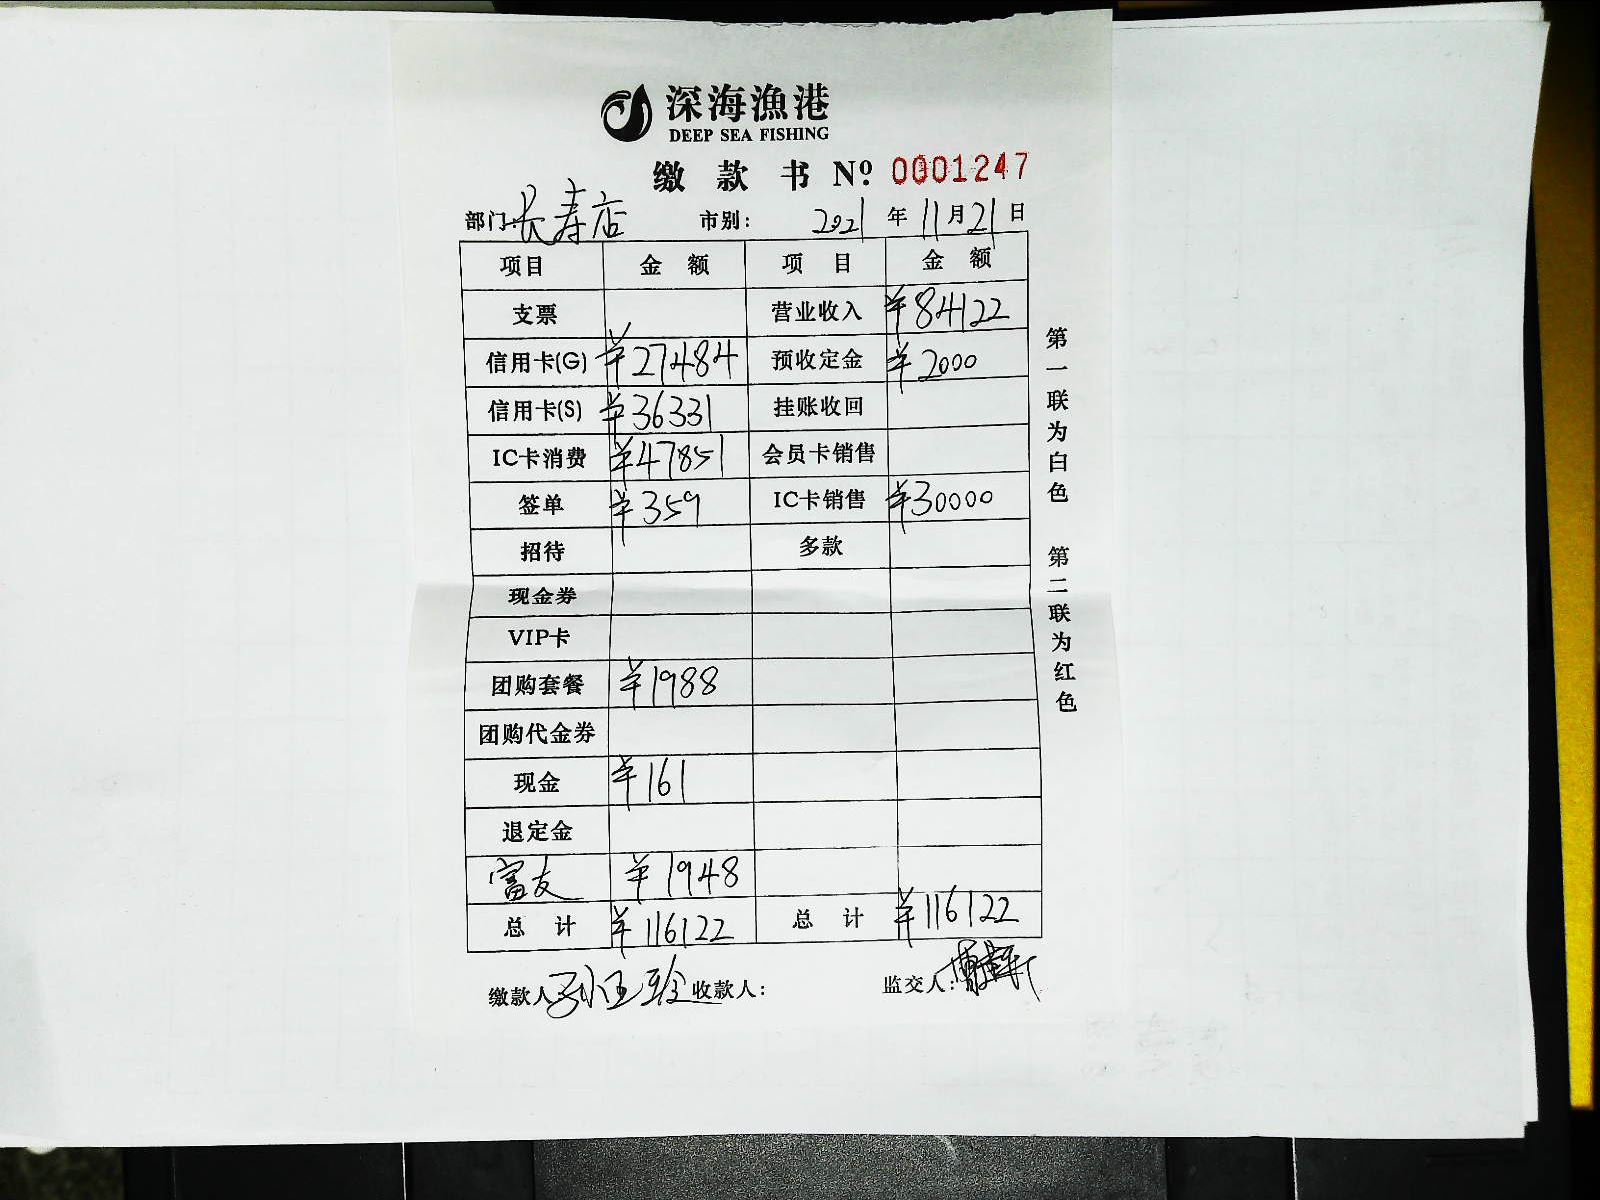 深海漁港
DEEP SEA FISHING
缴款书 Nº 0001247
部门:长寿店 市别: 2021年11月21日
项目 金额 项目 金额
支票 营业收入 ¥84122
信用卡(G) ¥27484 预收定金 ¥2000
信用卡(S) ¥36331 挂账收回
IC卡消费 ¥47851 会员卡销售
签单 ¥359 IC卡销售 ¥30000
招待 多款
现金券
VIP卡
团购套餐 ¥1988
团购代金券
现金 ¥161
退定金
富友 ¥1948
总计 ¥116122 总计 ¥116122
缴款人 收款人: 监交人:
第一联为白色 第二联为红色